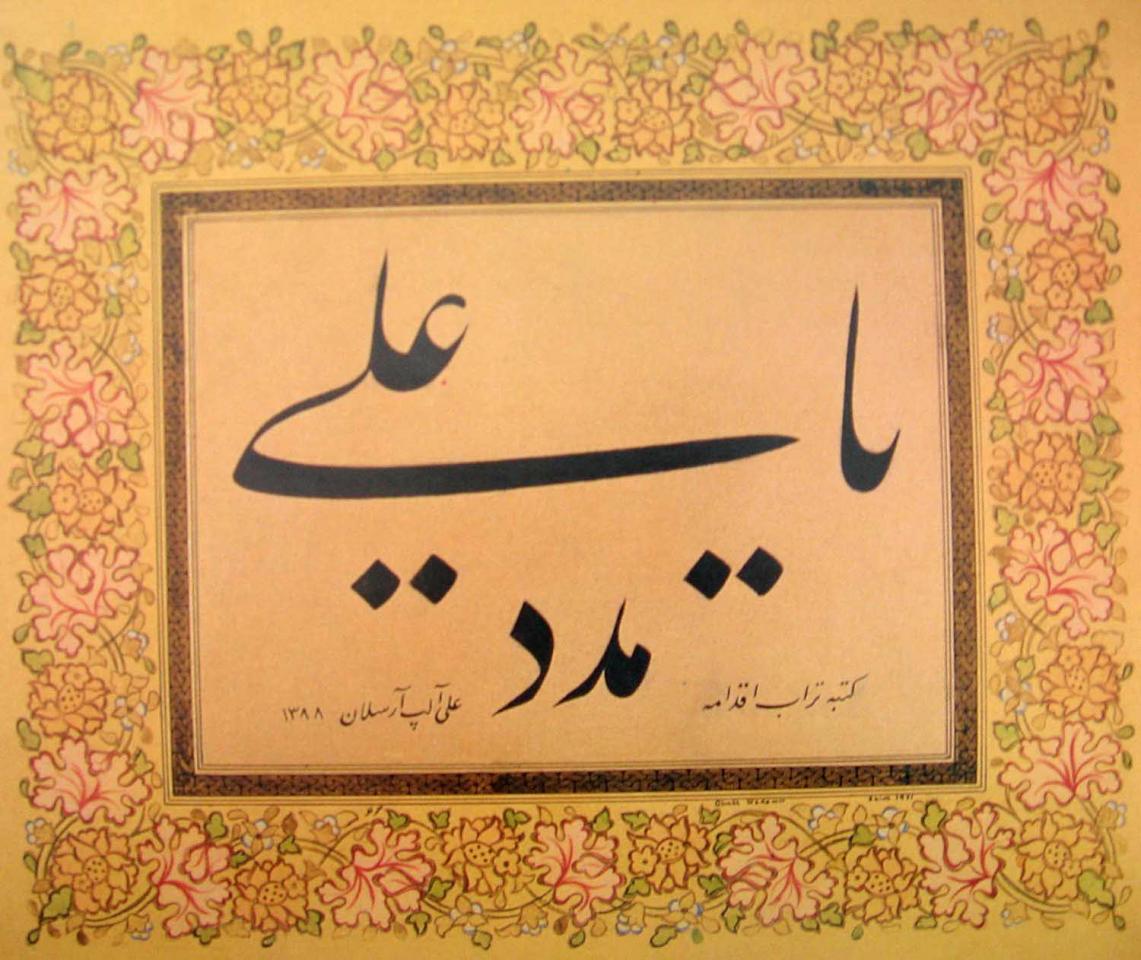 یا علی
مدد
کتبه تراب اقدامه
علی آلپ آرسلان ١٣٨٨